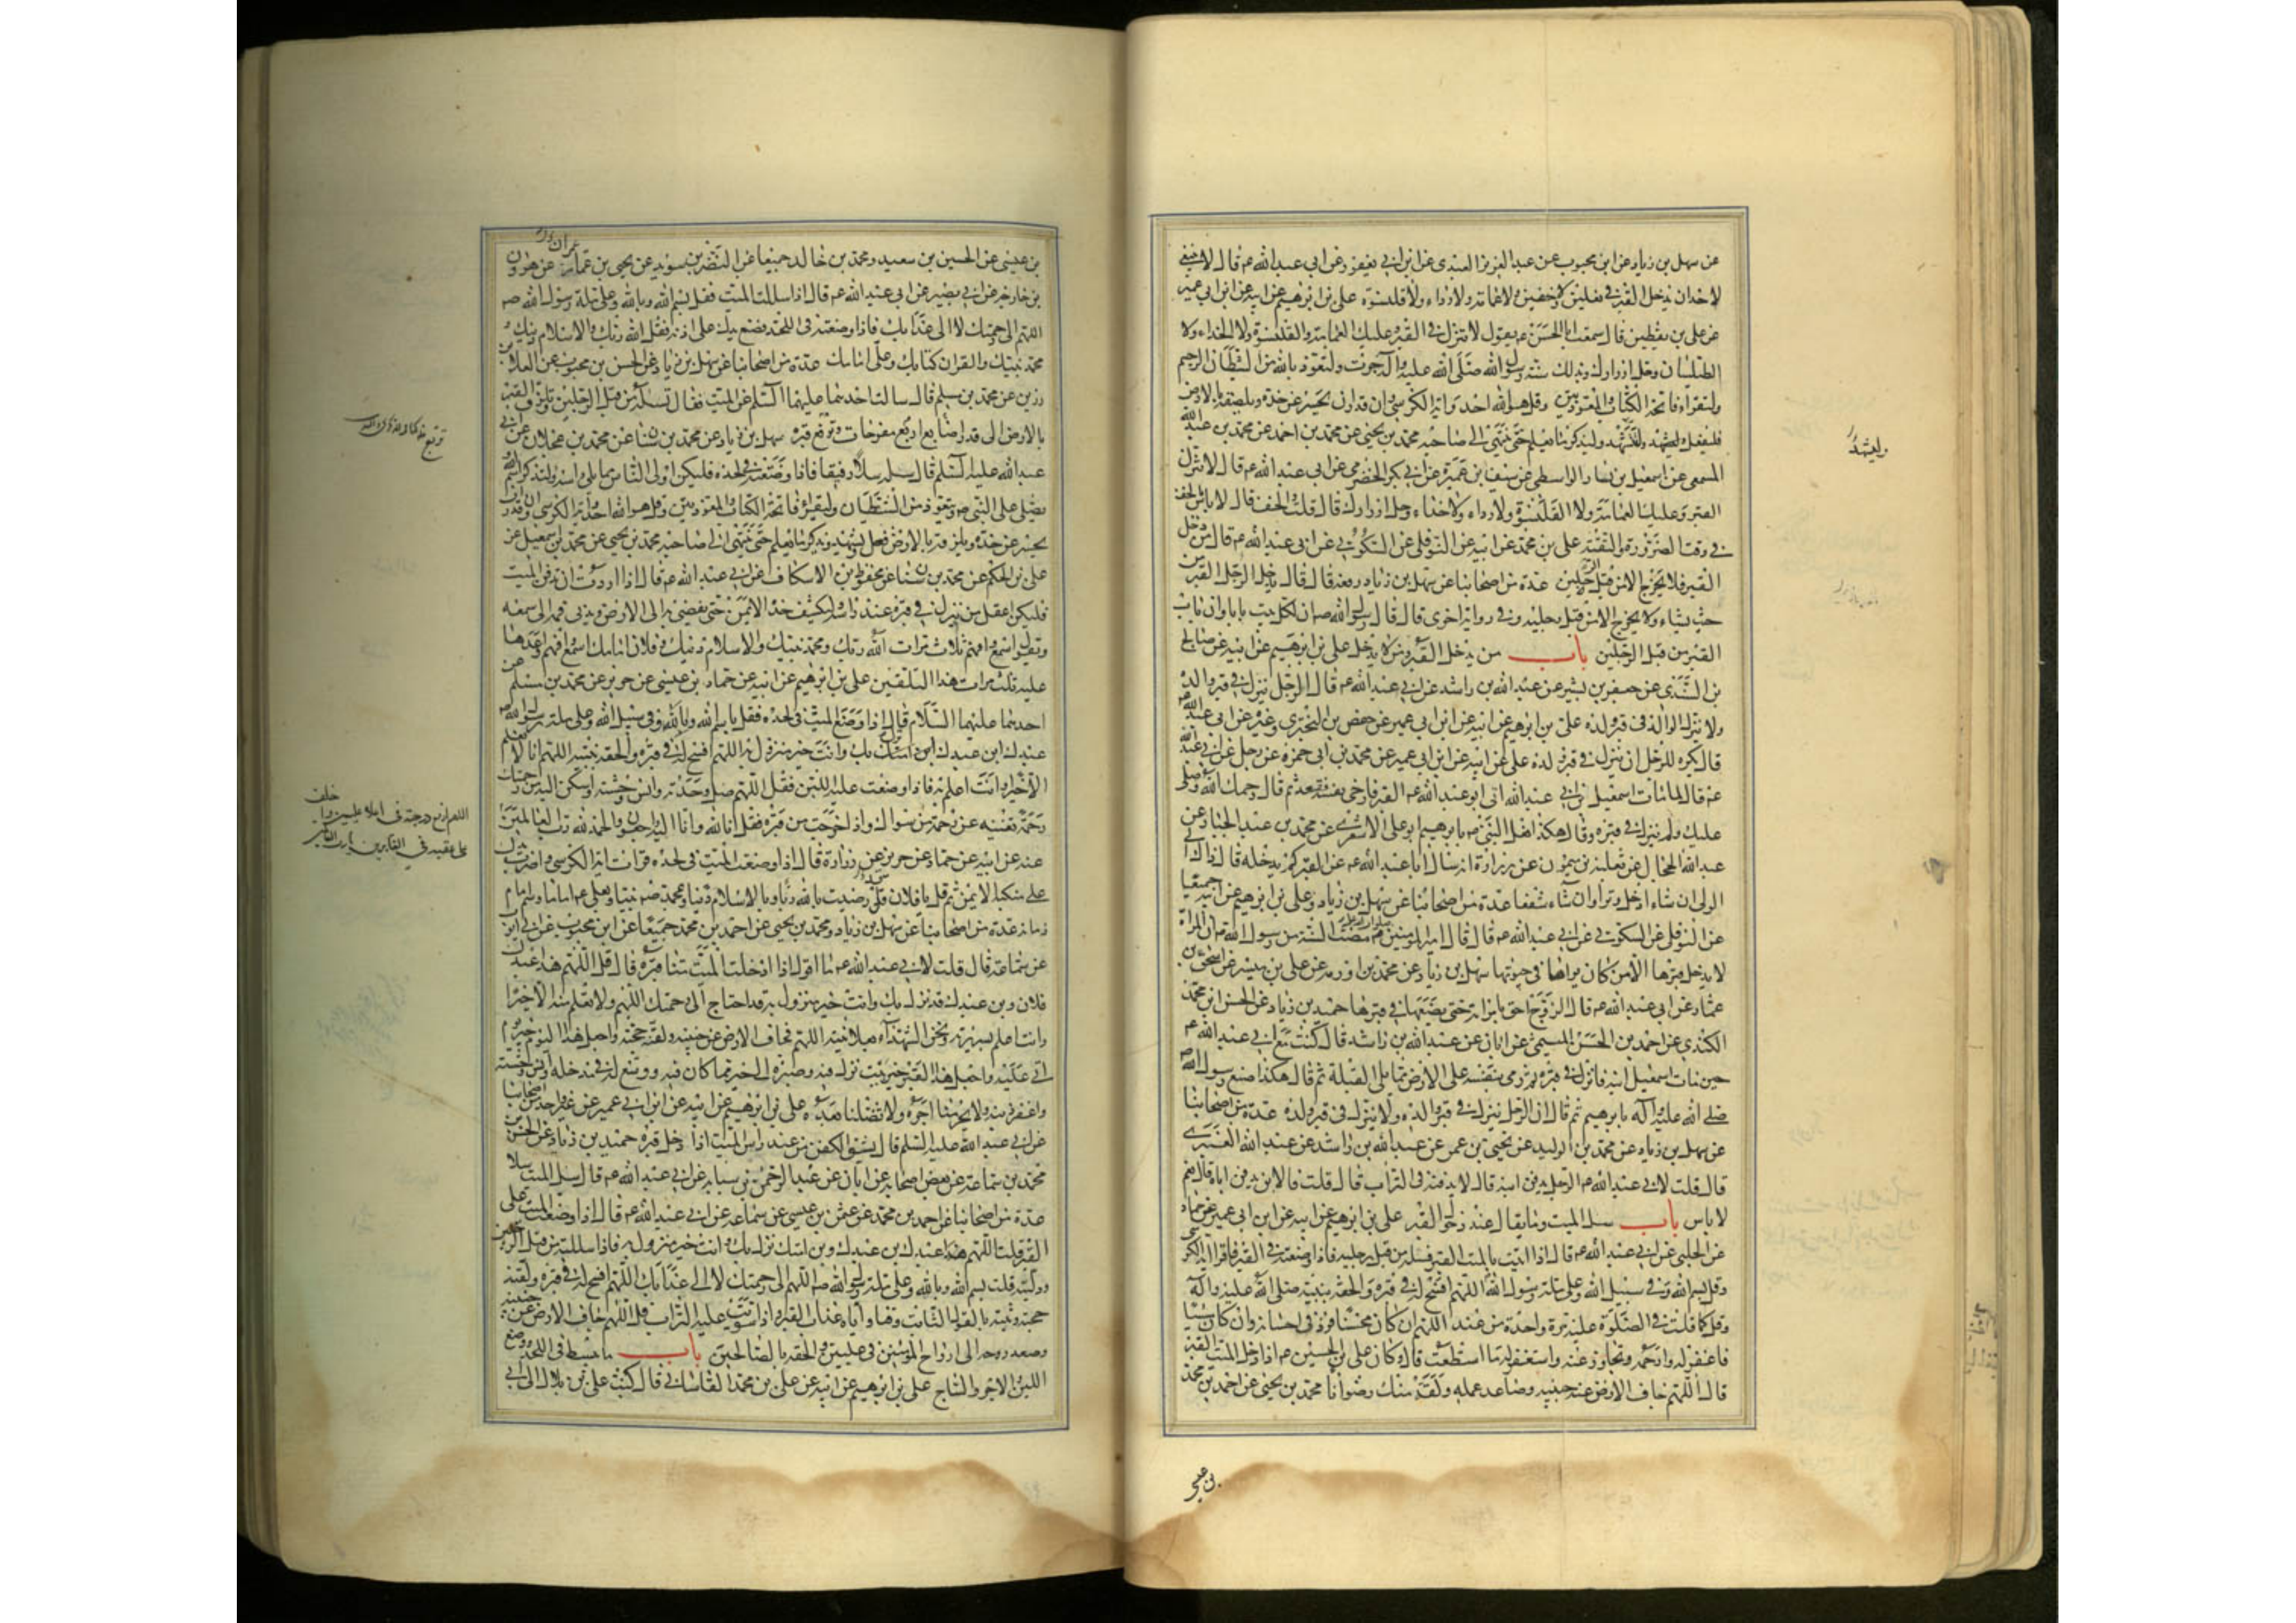 عن سهل بن زياد عن ابن محبوب عن عبد العزيز العبدي عن ابن ابي يعفور عن ابي عبد الله عم قال لا ينبغي
لاحد ان يدخل القبر في نعلين ولا خفين ولا عمامة ولا رداء ولا قلنسوة علي بن ابرهيم عن ابيه عن ابن ابي عمير
عن علي بن يقطين قال سمعت ابا الحسن عم يقول لا تنزل في القبر وعليك العمامة والقلنسوة ولا الحذاء ولا
الطيلسان وحلل ازرارك وبذلك سنة رسول الله صلى الله عليه وآله جرت وليتعوذ بالله من الشيطان الرجيم
وليقراء فاتحة الكتاب والمعوذتين وقل هو الله احد واية الكرسي وان قدر ان يحسر عن خده ويلصقه بالارض
فليفعل وليشهد وليذكر ما يعلم حتى ينتهي الى صاحبه محمد بن يحيى عن محمد بن احمد عن محمد بن عبد الله
المسمعي عن اسمعيل بن يسار الواسطي عن سيف بن عميرة عن ابي بكر الحضرمي عن ابي عبد الله عم قال لا تنزل
القبر وعليك العمامة ولا القلنسوة ولا رداء ولا حذاء وحلل ازرارك قال قلت والخف قال لا باس بالخف
في وقت الضرورة والتقية علي بن محمد عن ابيه عن النوفلي عن السكوني عن ابي عبد الله عم قال من دخل
القبر فلا يخرج الا من قبل الرجلين عدة من اصحابنا عن سهل بن زياد رفعه قال قال يدخل الرجل القبر من
حيث يشاء ولا يخرج الا من قبل رجليه وفي رواية اخرى قال قال رسول الله صم ان لكل بيت بابا وان باب
القبر من قبل الرجلين باب من يدخل القبر ومن لا يدخل علي بن ابرهيم عن ابيه عن صالح
بن السندي عن جعفر بن بشير عن عبد الله بن راشد عن ابي عبد الله عم قال الرجل ينزل في قبر والده
ولا ينزل الوالد في قبر ولده علي بن ابرهيم عن ابيه عن ابن ابي عمير عن حفص بن البختري وغيره عن ابي عبد الله عم
قال يكره للرجل ان ينزل في قبر ولده علي عن ابيه عن ابن ابي عمير عن محمد بن ابي حمزة عن رجل عن ابي عبد الله
عم قال لما مات اسمعيل بن ابي عبد الله اتى ابو عبد الله عم القبر فارخى نفسه فقعد ثم قال رحمك الله وصلى
عليك ولم ينزل في قبره وقال هكذا فعل النبي صم بابرهيم ابو علي الاشعري عن محمد بن عبد الجبار عن
عبد الله الحجال عن ثعلبة بن ميمون عن زرارة انه سال ابا عبد الله عم عن القبر كم يدخله قال ذاك الى
الولي ان شاء ادخل وترا وان شاء شفعا عدة من اصحابنا عن سهل بن زياد وعلي بن ابرهيم عن ابيه جميعا
عن النوفلي عن السكوني عن ابي عبد الله عم قال قال امير المومنين عم مضت السنة من رسول الله صم ان المراة
لا يدخل قبرها الا من كان يراها في حيوتها سهل بن زياد عن محمد بن اورمة عن علي بن ميسر عن اسحق بن
عمار عن ابي عبد الله عم قال الزوج احق بامراته حتى يضعها في قبرها حميد بن زياد عن الحسن بن محمد
الكندي عن احمد بن الحسن الميثمي عن ابان عن عبد الله بن راشد قال كنت مع ابي عبد الله عم
حين مات اسمعيل ابنه فانزل في قبره ثم رمى بنفسه على الارض مما يلي القبلة ثم قال هكذا صنع رسول الله
صلى الله عليه وآله بابرهيم ثم قال ان الرجل ينزل في قبر والده ولا ينزل في قبر ولده عدة من اصحابنا
عن سهل بن زياد عن محمد بن الوليد عن يحيى بن عمر عن عبد الله بن راشد عن عبد الله العنبري
قال قلت لابي عبد الله عم الرجل يدفن ابنه قال لا يدفنه في التراب قال قلت فالابن يدفن اباه قال نعم
لا باس باب سل الميت وما يقال عند دخول القبر علي بن ابرهيم عن ابيه عن ابن ابي عمير عن حماد
عن الحلبي عن ابي عبد الله عم قال اذا اتيت بالميت القبر فسله من قبل رجليه فاذا وضعته في القبر فاقرا اية الكرسي
وقل بسم الله وفي سبيل الله وعلى ملة رسول الله اللهم افسح له في قبره والحقه بنبيه صلى الله عليه وآله
وقل كما قلت في الصلوة عليه مرة واحدة من عند اللهم ان كان محسنا فزد في احسانه وان كان مسيئا
فاغفر له وارحمه وتجاوز عنه واستغفر له ما استطعت قال وكان علي بن الحسين عم اذا ادخل الميت القبر
قال اللهم جاف الارض عن جنبيه وصاعد عمله ولقه منك رضوانا محمد بن يحيى عن احمد بن محمد
بن عيسى
وليتشهد
بن عيسى عن الحسين بن سعيد ومحمد بن خالد جميعا عن النضر بن سويد عن يحيى بن عمار عن هرون
عمران
بن خارجة عن ابي بصير عن ابي عبد الله عم قال اذا سللت الميت فقل بسم الله وبالله وعلى ملة رسول الله صم
اللهم الى رحمتك لا الى عذابك فاذا وضعته في اللحد فضع يدك على اذنه فقل الله ربك والاسلام دينك و
محمد نبيك والقران كتابك وعلي امامك عدة من اصحابنا عن سهل بن زياد عن الحسن بن محبوب عن العلا بن
رزين عن محمد بن مسلم قال سالت احدهما عليهما السلم عن الميت فقال تسله من قبل الرجلين وتلزق القبر
بالارض الى قدر اصابع اربع مفرجات وترفع قبره سهل بن زياد عن محمد بن سنان عن محمد بن عجلان عن ابي
عبد الله عليه السلم قال سله سلا رفيقا فاذا وضعته في لحده فليكن اولى الناس مما يلي راسه وليذكر اسم الله
ويصلي على النبي صم ويتعوذ من الشيطان وليقرأ فاتحة الكتاب والمعوذتين وقل هو الله احد واية الكرسي وان قدر ان
يحسر عن خده ويلزقه بالارض فعل ويشهد ويذكر ما يعلم حتى ينتهي الى صاحبه محمد بن يحيى عن محمد بن اسمعيل عن
علي بن الحكم عن محمد بن سنان عن محفوظ الاسكاف عن ابي عبد الله عم قال اذا اردت ان تدفن الميت
فليكن اعقل من ينزل في قبره عند راسه وليكشف خده الايمن حتى يفضي به الى الارض ويدني فمه الى سمعه
ويقول اسمع افهم ثلاث مرات الله ربك ومحمد نبيك والاسلام دينك وفلان امامك اسمع افهم واعدها
عليه ثلث مرات هذا التلقين علي بن ابرهيم عن ابيه عن حماد بن عيسى عن حريز عن محمد بن مسلم عن
احدهما عليهما السلام قال اذا وضع الميت في لحده فقل بسم الله وبالله وفي سبيل الله وعلى ملة رسول الله
عبدك ابن عبدك ابن امتك نزل بك وانت خير منزول به اللهم افسح له في قبره والحقه بنبيه اللهم انا لا نعلم
الا خيرا وانت اعلم به فاذا وضعت عليه اللبن فقل اللهم صل وحدته وانس وحشته واسكن اليه من رحمتك
رحمة تغنيه عن رحمة من سواك واذا خرجت من قبره فقل انا لله وانا اليه راجعون والحمد لله رب العالمين
عنه عن ابيه عن حماد عن حريز عن زرارة قال اذا وضعت الميت في لحده قرات اية الكرسي واضرب يدك
على منكبه الايمن ثم قل يا فلان قل رضيت بالله ربا وبالاسلام دينا وبمحمد صم نبيا وبعلي عم اماما وسم امام
زمانه عدة من اصحابنا عن سهل بن زياد ومحمد بن يحيى عن احمد بن محمد جميعا عن ابن محبوب عن ابي ايوب
عن سماعة قال قلت لابي عبد الله عم ما اقول اذا ادخلت الميت منا قبره قال قل اللهم هذا عبدك
فلان وبن عبدك قد نزل بك وانت خير منزول به قد احتاج الى رحمتك اللهم ولا نعلم منه الا خيرا
وانت اعلم بسريرته ونحن الشهداء بعلانيته اللهم فجاف الارض عن جنبيه ولقنه حجته واجعل هذا اليوم خير يوم
اتى عليه واجعل هذا القبر خير بيت نزل فيه وصيره الى خير مما كان فيه ووسع له في مدخله وانس وحشته
واغفر ذنبه ولا تحرمنا اجره ولا تضلنا بعده علي بن ابرهيم عن ابيه عن ابن ابي عمير عن غير واحد من اصحابنا
عن ابي عبد الله عليه السلم قال يشق الكفن من عند راس الميت اذا دخل قبره حميد بن زياد عن الحسن بن
محمد بن سماعة عن بعض اصحابه عن ابان عن عبد الرحمن بن سيابة عن ابي عبد الله عم قال سل الميت سلا
عدة من اصحابنا عن احمد بن محمد عن عثمن بن عيسى عن سماعة عن ابي عبد الله عم قال اذا وضعت الميت على
القبر قلت اللهم هذا عبدك بن عبدك وبن امتك نزل بك وانت خير منزول به فاذا سللته من قبل الرجلين
ودليته قلت بسم الله وبالله وعلى ملة رسول الله صم اللهم الى رحمتك لا الى عذابك اللهم افسح له في قبره ولقنه
حجته وثبته بالقول الثابت وقنا واياه عذاب القبر واذا سويت عليه التراب قل اللهم جاف الارض عن جنبيه
وصعد روحه الى ارواح المؤمنين في عليين والحقه بالصالحين باب ما يبسط في اللحد ووضع
اللبن والاجر والساج علي بن ابرهيم عن ابيه عن علي بن محمد القاساني قال كتب علي بن بلال الى ابي
اللهم ارفع درجته في اعلا عليين واخلف
على عقبه في الغابرين يا رب العالمين